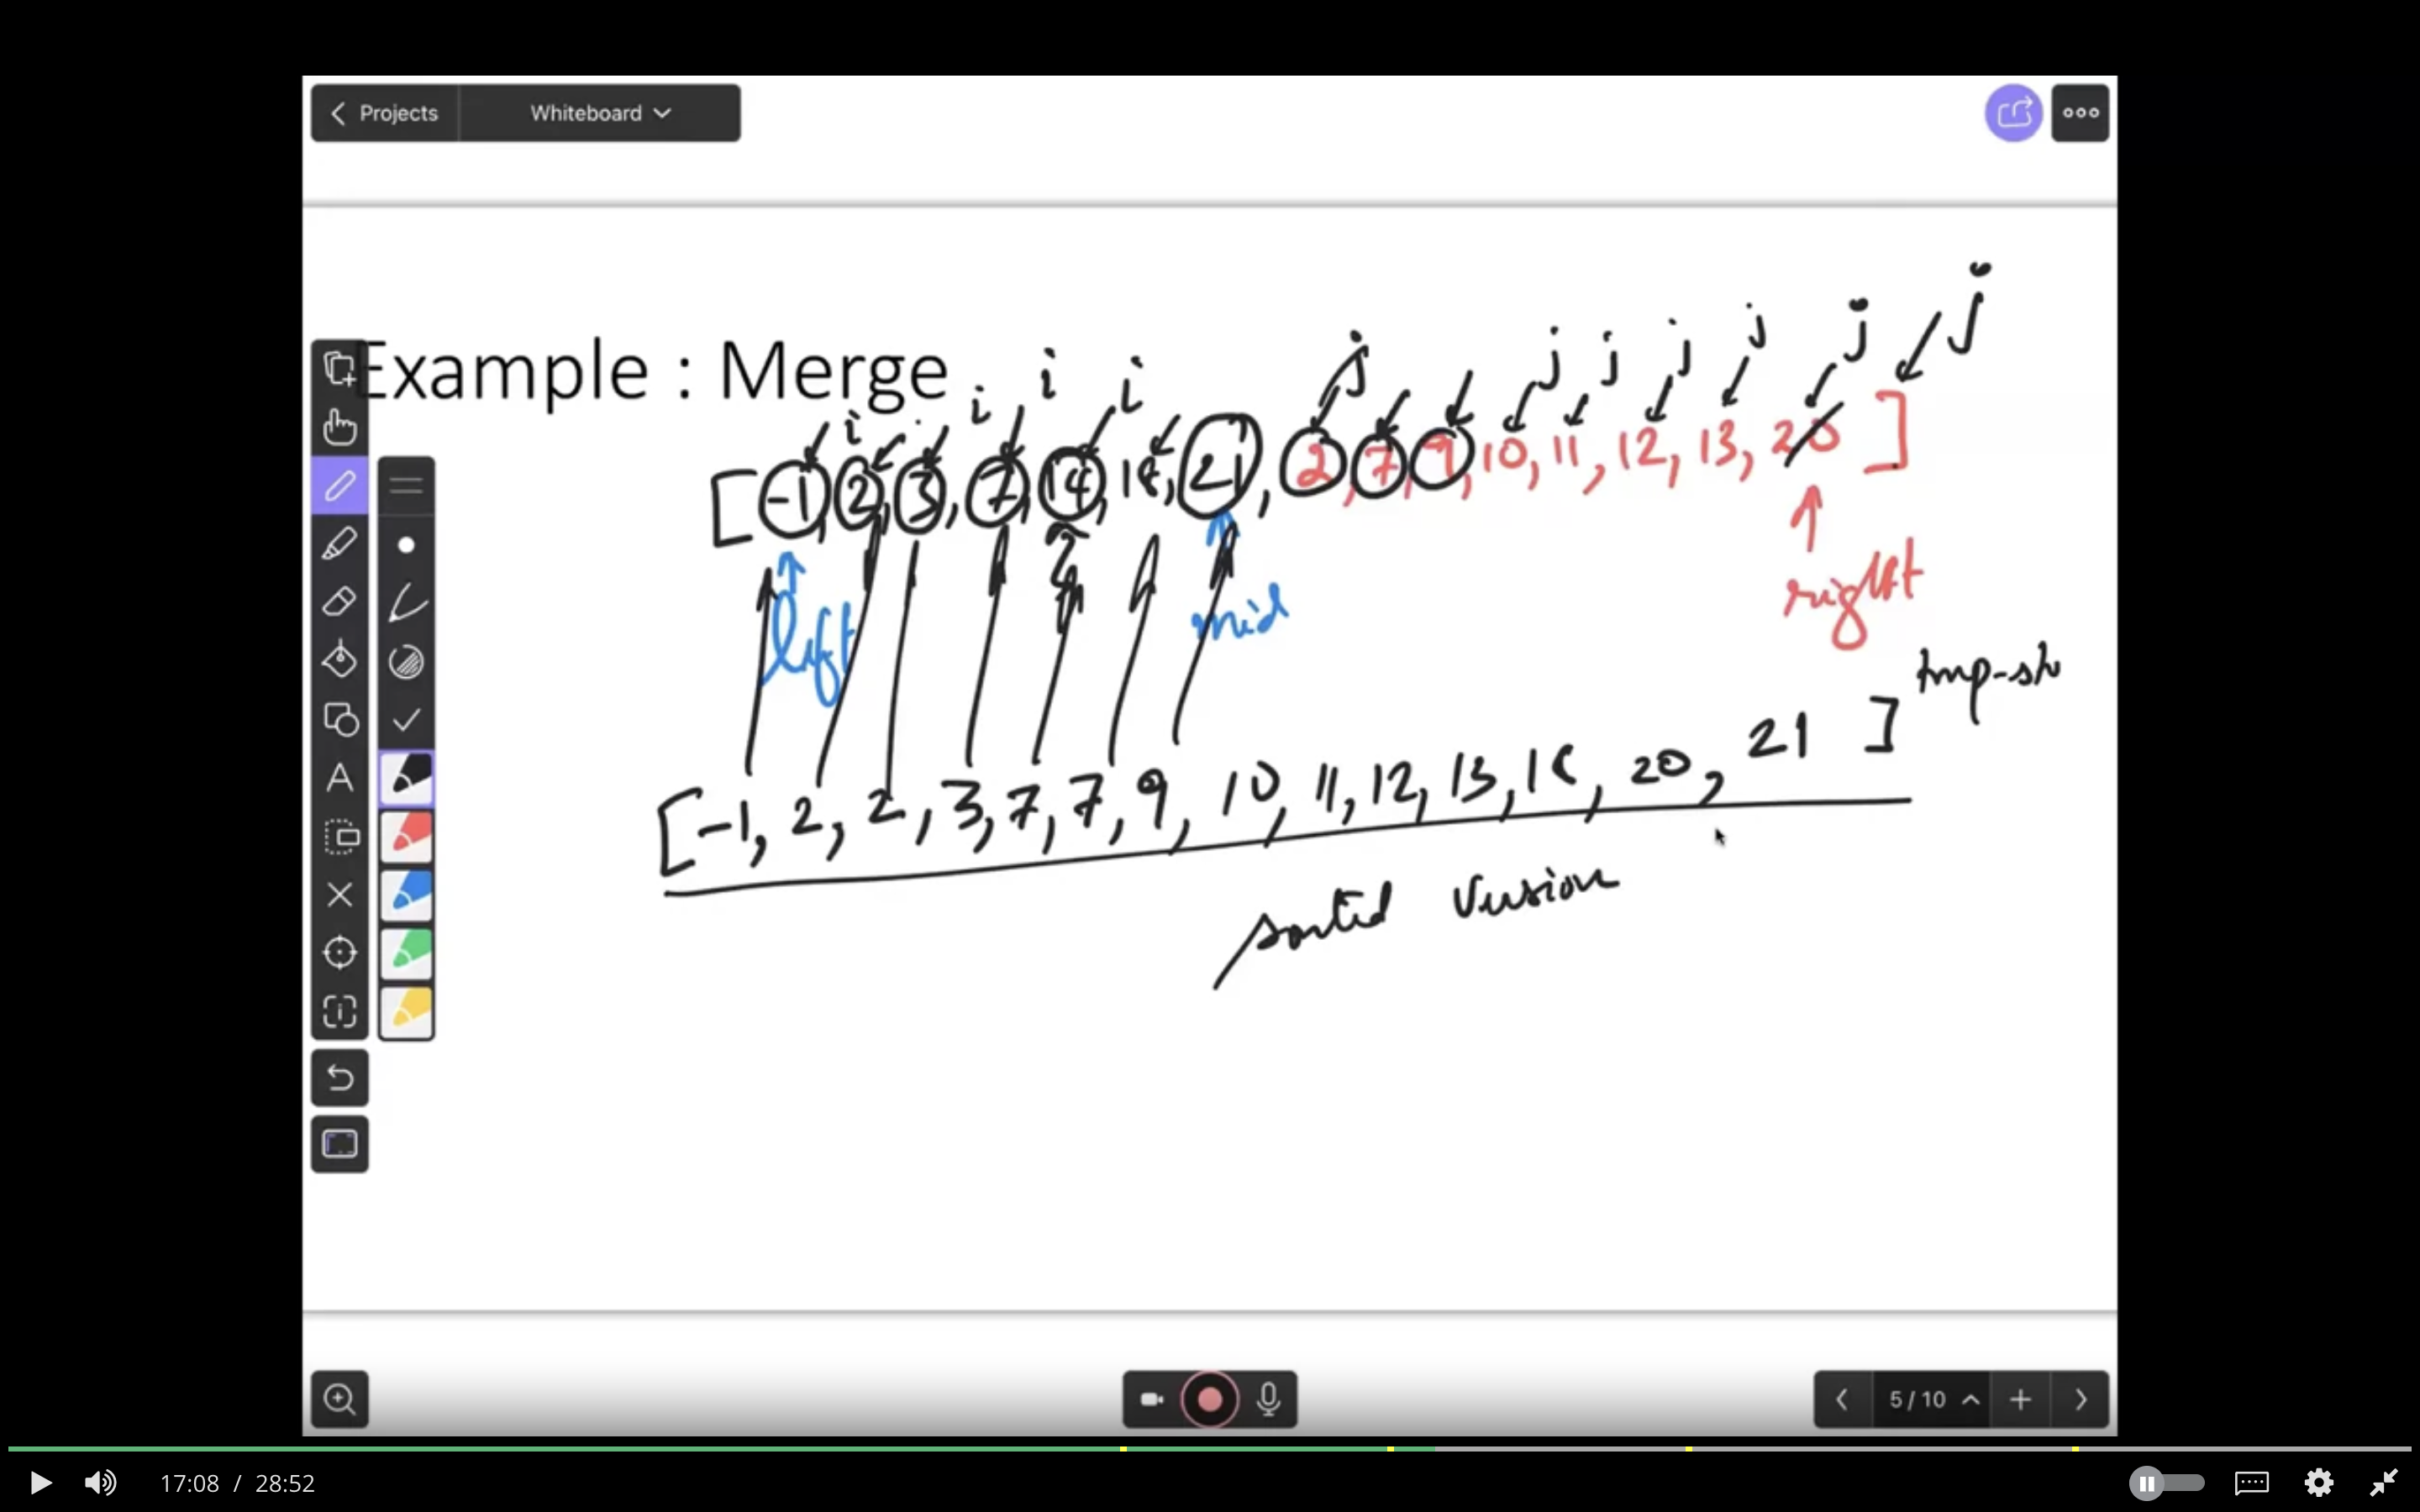 Projects Whiteboard
Example : Merge
i i i i j j j j j j j
[-1, 2, 3, 7, 14, 18, 21, 2, 7, 9, 10, 11, 12, 13, 20]
left mid right
[-1, 2, 2, 3, 7, 7, 9, 10, 11, 12, 13, 18, 20, 21 ]
sorted version
5 / 10
17:08 / 28:52